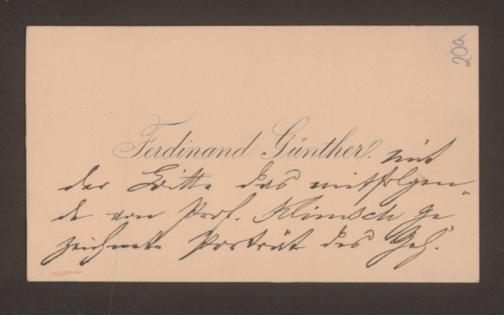 20a
Ferdinand Günther. mit
der Bitte das mitfolgen-
de von Prof. Klimsch ge-
zeichnete Porträt des Geh.